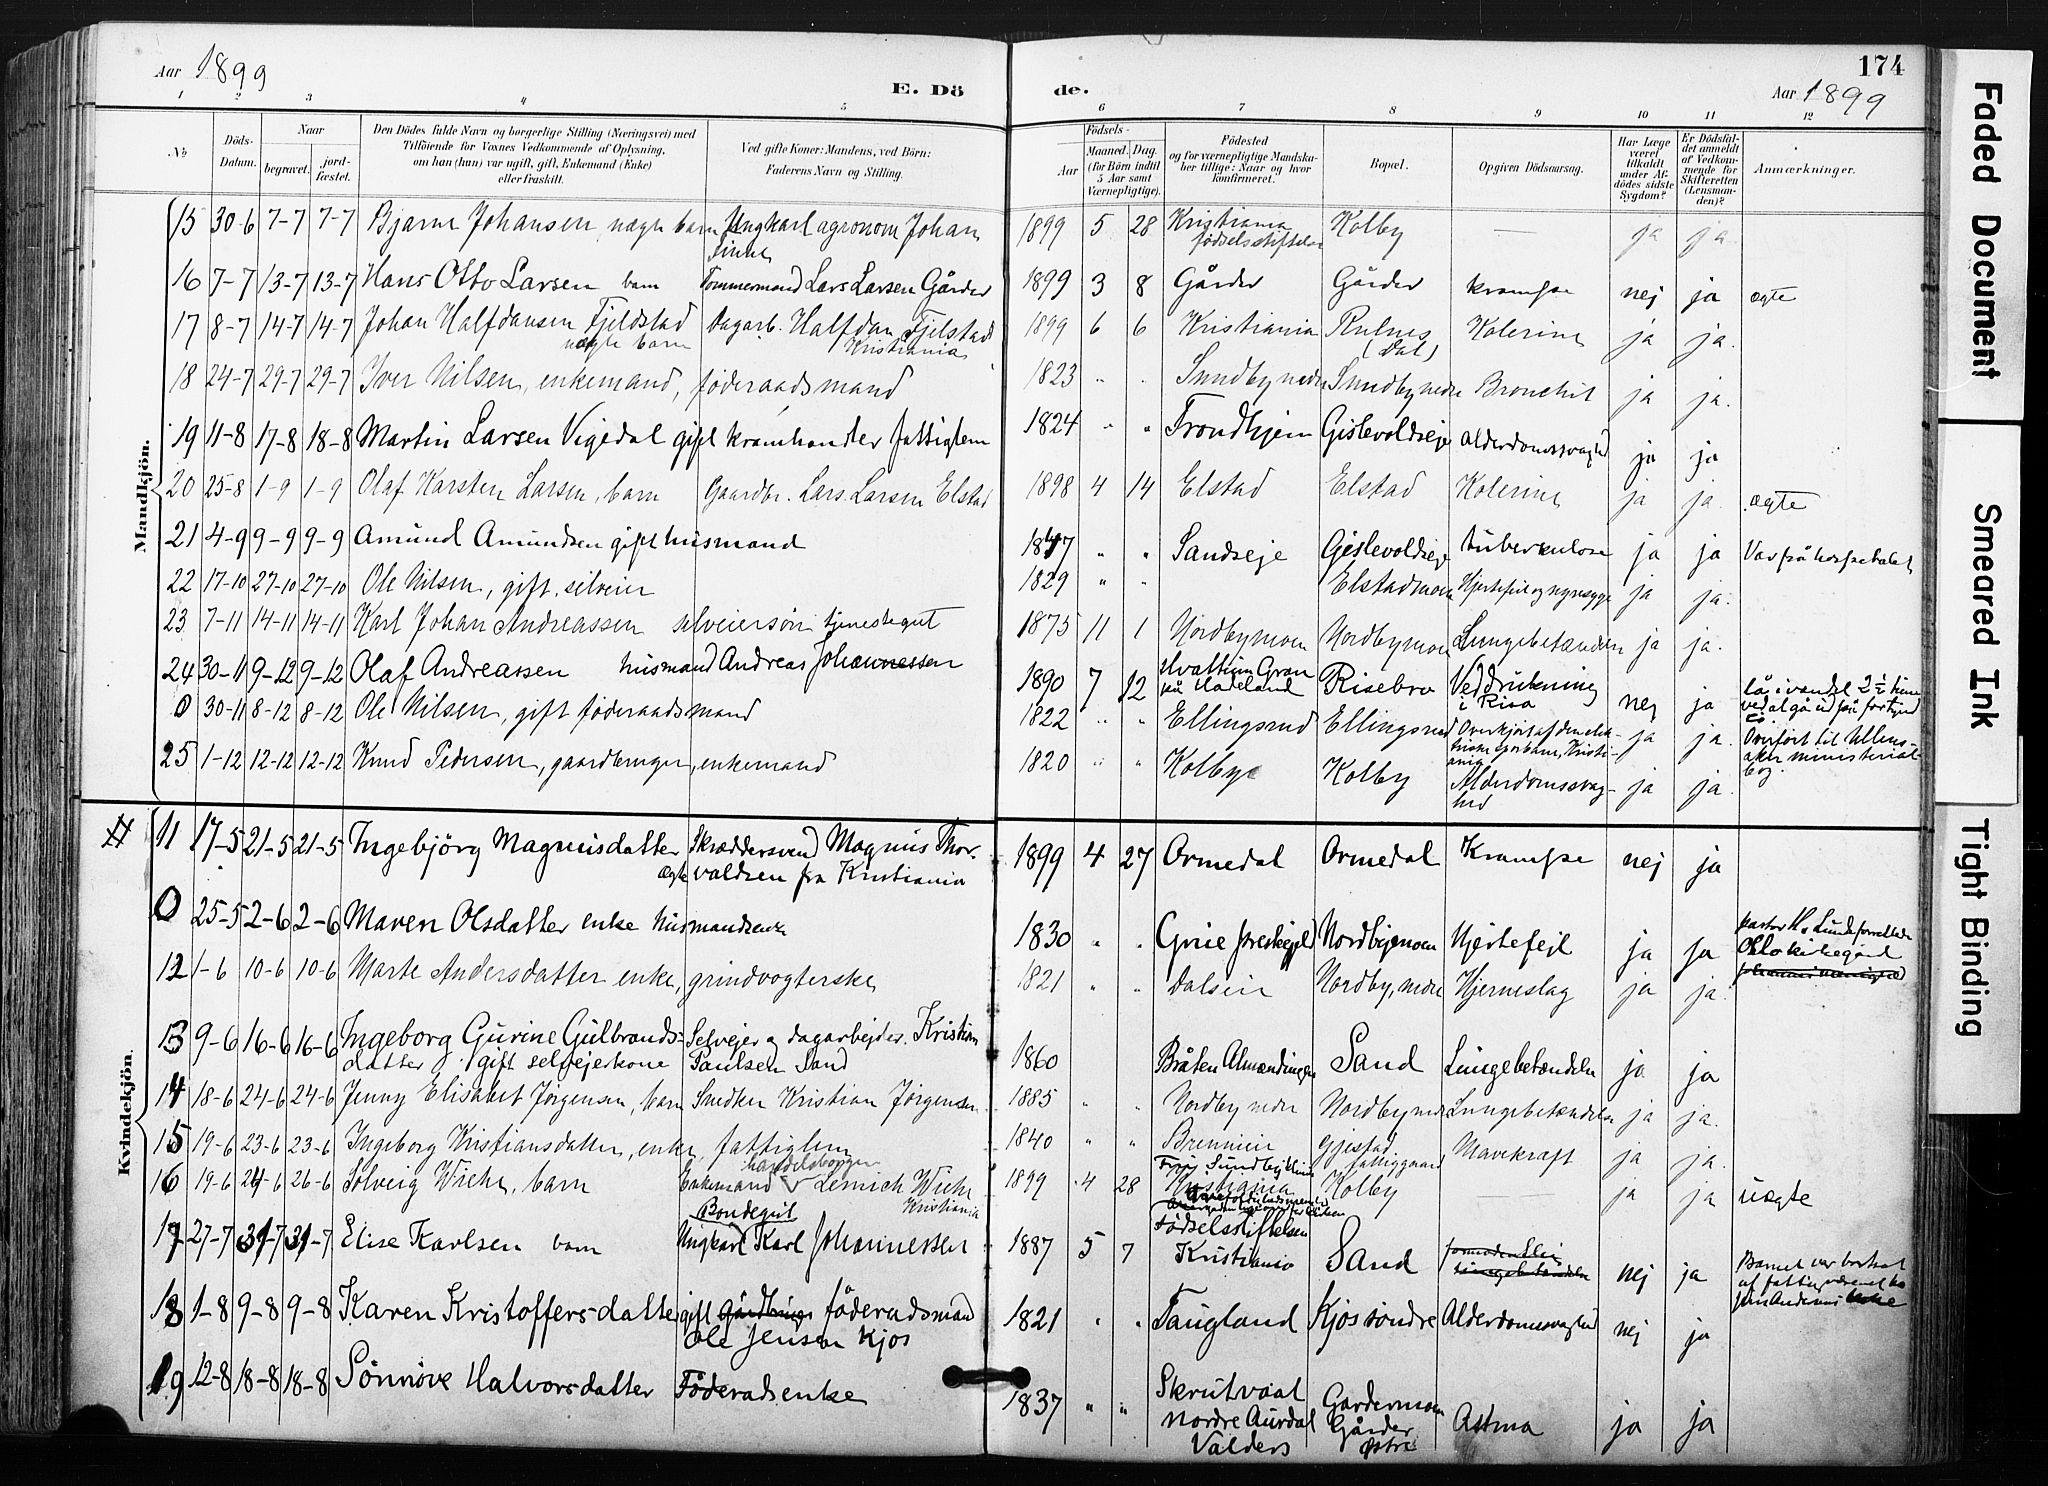 Aar 1899
E. Dö
de.
174
Aar 1899
1 2 3 4 5 6 7 8 9 10 11 12
No
Döds-Datum.
Naar
begravet.
jord-fæstet.
Den Dödes fulde Navn og borgerlige Stilling (Næringsvei) med
Tilföiende for Voxnes Vedkommende af Oplysning,
om han (hun) var ugift, gift, Enkemand (Enke)
eller fraskilt.
Ved gifte Koner: Mandens, ved Börn:
Faderens Navn og Stilling.
Födsels-
Aar
Maaned. Dag.
(for Börn indtil
5 Aar samt
Værnepligtige).
Födested
og for værnepligtige Mandska-
ber tillige: Naar og hvor
konfirmeret.
Bopæl.
Opgiven Dödsaarsag.
Har Læge
været
tilkaldt
under Af-
dödes sidste
Sygdom?
Er Dödsfal-
det anmeldt
af Vedkom-
mende for
Skifteretten
(Lensman-
den)?
Anmærkninger.
Mandkjön.
15 30-6 7-7 7-7 Bjarne Johansen, uægte barn Ungkarl agronom Johan 1899 5 28 Kristiania fødselsstiftelse Kolby — ja ja.
16 7-7 13-7 13-7 Hans Otto Larsen barn Tømmermand Lars Larsen Gårder 1899 3 8 Gårder Gårder krampe nej ja ægte
17 8-7 14-7 14-7 Johan Halfdansen Fjeldstad uægte barn Dagarb. Halfdan Fjelstad Kristiania 1899 6 6 Kristiania (Dal) Kolerine ja ja.
18 24-7 29-7 29-7 Iver Nilsen, enkemand, føderaadsmand 1823 " " Sundby nedre Sundby nedre Bronchit ja ja.
19 11-8 17-8 18-8 Martin Larsen Vigedal gift kramhandler fattiglem 1824 " " Trondhjem Gislevoldseje alderdomssvaghed ja ja
20 25-8 1-9 1-9 Olaf Karsten Larsen, barn Gaardbr. Lars Larsen Elstad 1898 4 14 Elstad Elstad Kolerine ja ja. ægte
21 4-9 9-9 9-9 Amund Amundsen gift husmand 1847 " " Sandseje Gislevoldseje tuberkulose ja ja Var på hospitalet
22 17-10 27-10 27-10 Ole Nilsen, gift, selveier 1829 " " Elstadmoen Hjertefeil og nyresyge ja ja.
23 7-11 14-11 14-11 Karl Johan Andreassen selveiersøn tjenestegut 1875 11 1 Nordbymoen Nordbymoen Lungebetændelse ja ja.
24 30-11 9-12 9-12 Olaf Andreassen husmand Andreas Johannessen 1890 7 12 Hvattum Gran på Hadeland Risebro Ved drukning i Risa nej ja lå i vandet 2½ time ved at gå ud på for tynd is
0 30-11 8-12 8-12 Ole Nilsen, gift føderaadsmand 1822 " " Ellingsrud Ellingsrud Overkjørt af den elektriske sporbane, Kristiania ja ja. Overført til Ullensaker ministerialbog.
25 1-12 12-12 12-12 Knud Pedersen, gaardbruger, enkemand 1820 " " Kolby Kolby Alderdomssvaghed ja ja.
Kvindekjön.
# 11 17-5 21-5 21-5 Ingebjörg Magnusdatter ægte Skræddersvend Magnus Thorvaldsen fra Kristiania 1899 4 27 Ormedal Ormedal Krampe nej ja
0 25-5 2-6 2-6 Maren Olsdatter enke husmandsenke 1830 " " Grue prestegjeld Nordbymoen Hjertefejl ja ja pastor H. Lunde forrettede Oslo kirkegård
12 1-6 10-6 10-6 Marte Andersdatter enke, grindvogterske 1821 " " Dalseie Nordby, nedre Hjerneslag ja ja.
13 9-6 16-6 16-6 Ingeborg Gurine Gulbrandsdatter gift selvejerkone Selvejer og dagarbejder Kristian Paulsen Sand 1860 Bråten Almendingen Sand Lungebetændelse ja ja
14 18-6 24-6 24-6 Jenny Elisabet Jørgensen, barn Snedker Kristian Jørgensen 1885 " " Nordby nedre Nordby nedre Lungebetændelse ja ja.
15 19-6 23-6 23-6 Ingeborg Kristiansdatter, enke, fattiglem 1840 " " Brenneie Gjestad fattiggaard Mavekræft ja ja.
16 19-6 24-6 26-6 Solveig Wiche, barn Enkemand handelsborger Lemich Wiche Kristiania 1899 4 28 Kristiania Kolby ja ja uægte
17 27-7 31-7 31-7 Elise Karlsen barn Ungkarl Bondegut Karl Johannessen 1887 5 7 Fødselsstiftelsen Kristiania Sand formodentlig lungebetændelse nej ja Barnet var bortsat af fattigvæsenet hos
18 1-8 9-8 9-8 Karen Kristoffersdatter gift gårdbruger föderadsmand Ole Jensen Kjos 1821 " " Taugland Kjos söndre Alderdomssvaghed nej ja
19 12-8 18-8 18-8 Sönnöve Halvorsdatter Föderadsenke 1837 " " Skrutvaal Nordre Aurdal Valders Gardermoen Gårder østre Astma ja ja
Faded Document
Smeared Ink
Tight Binding